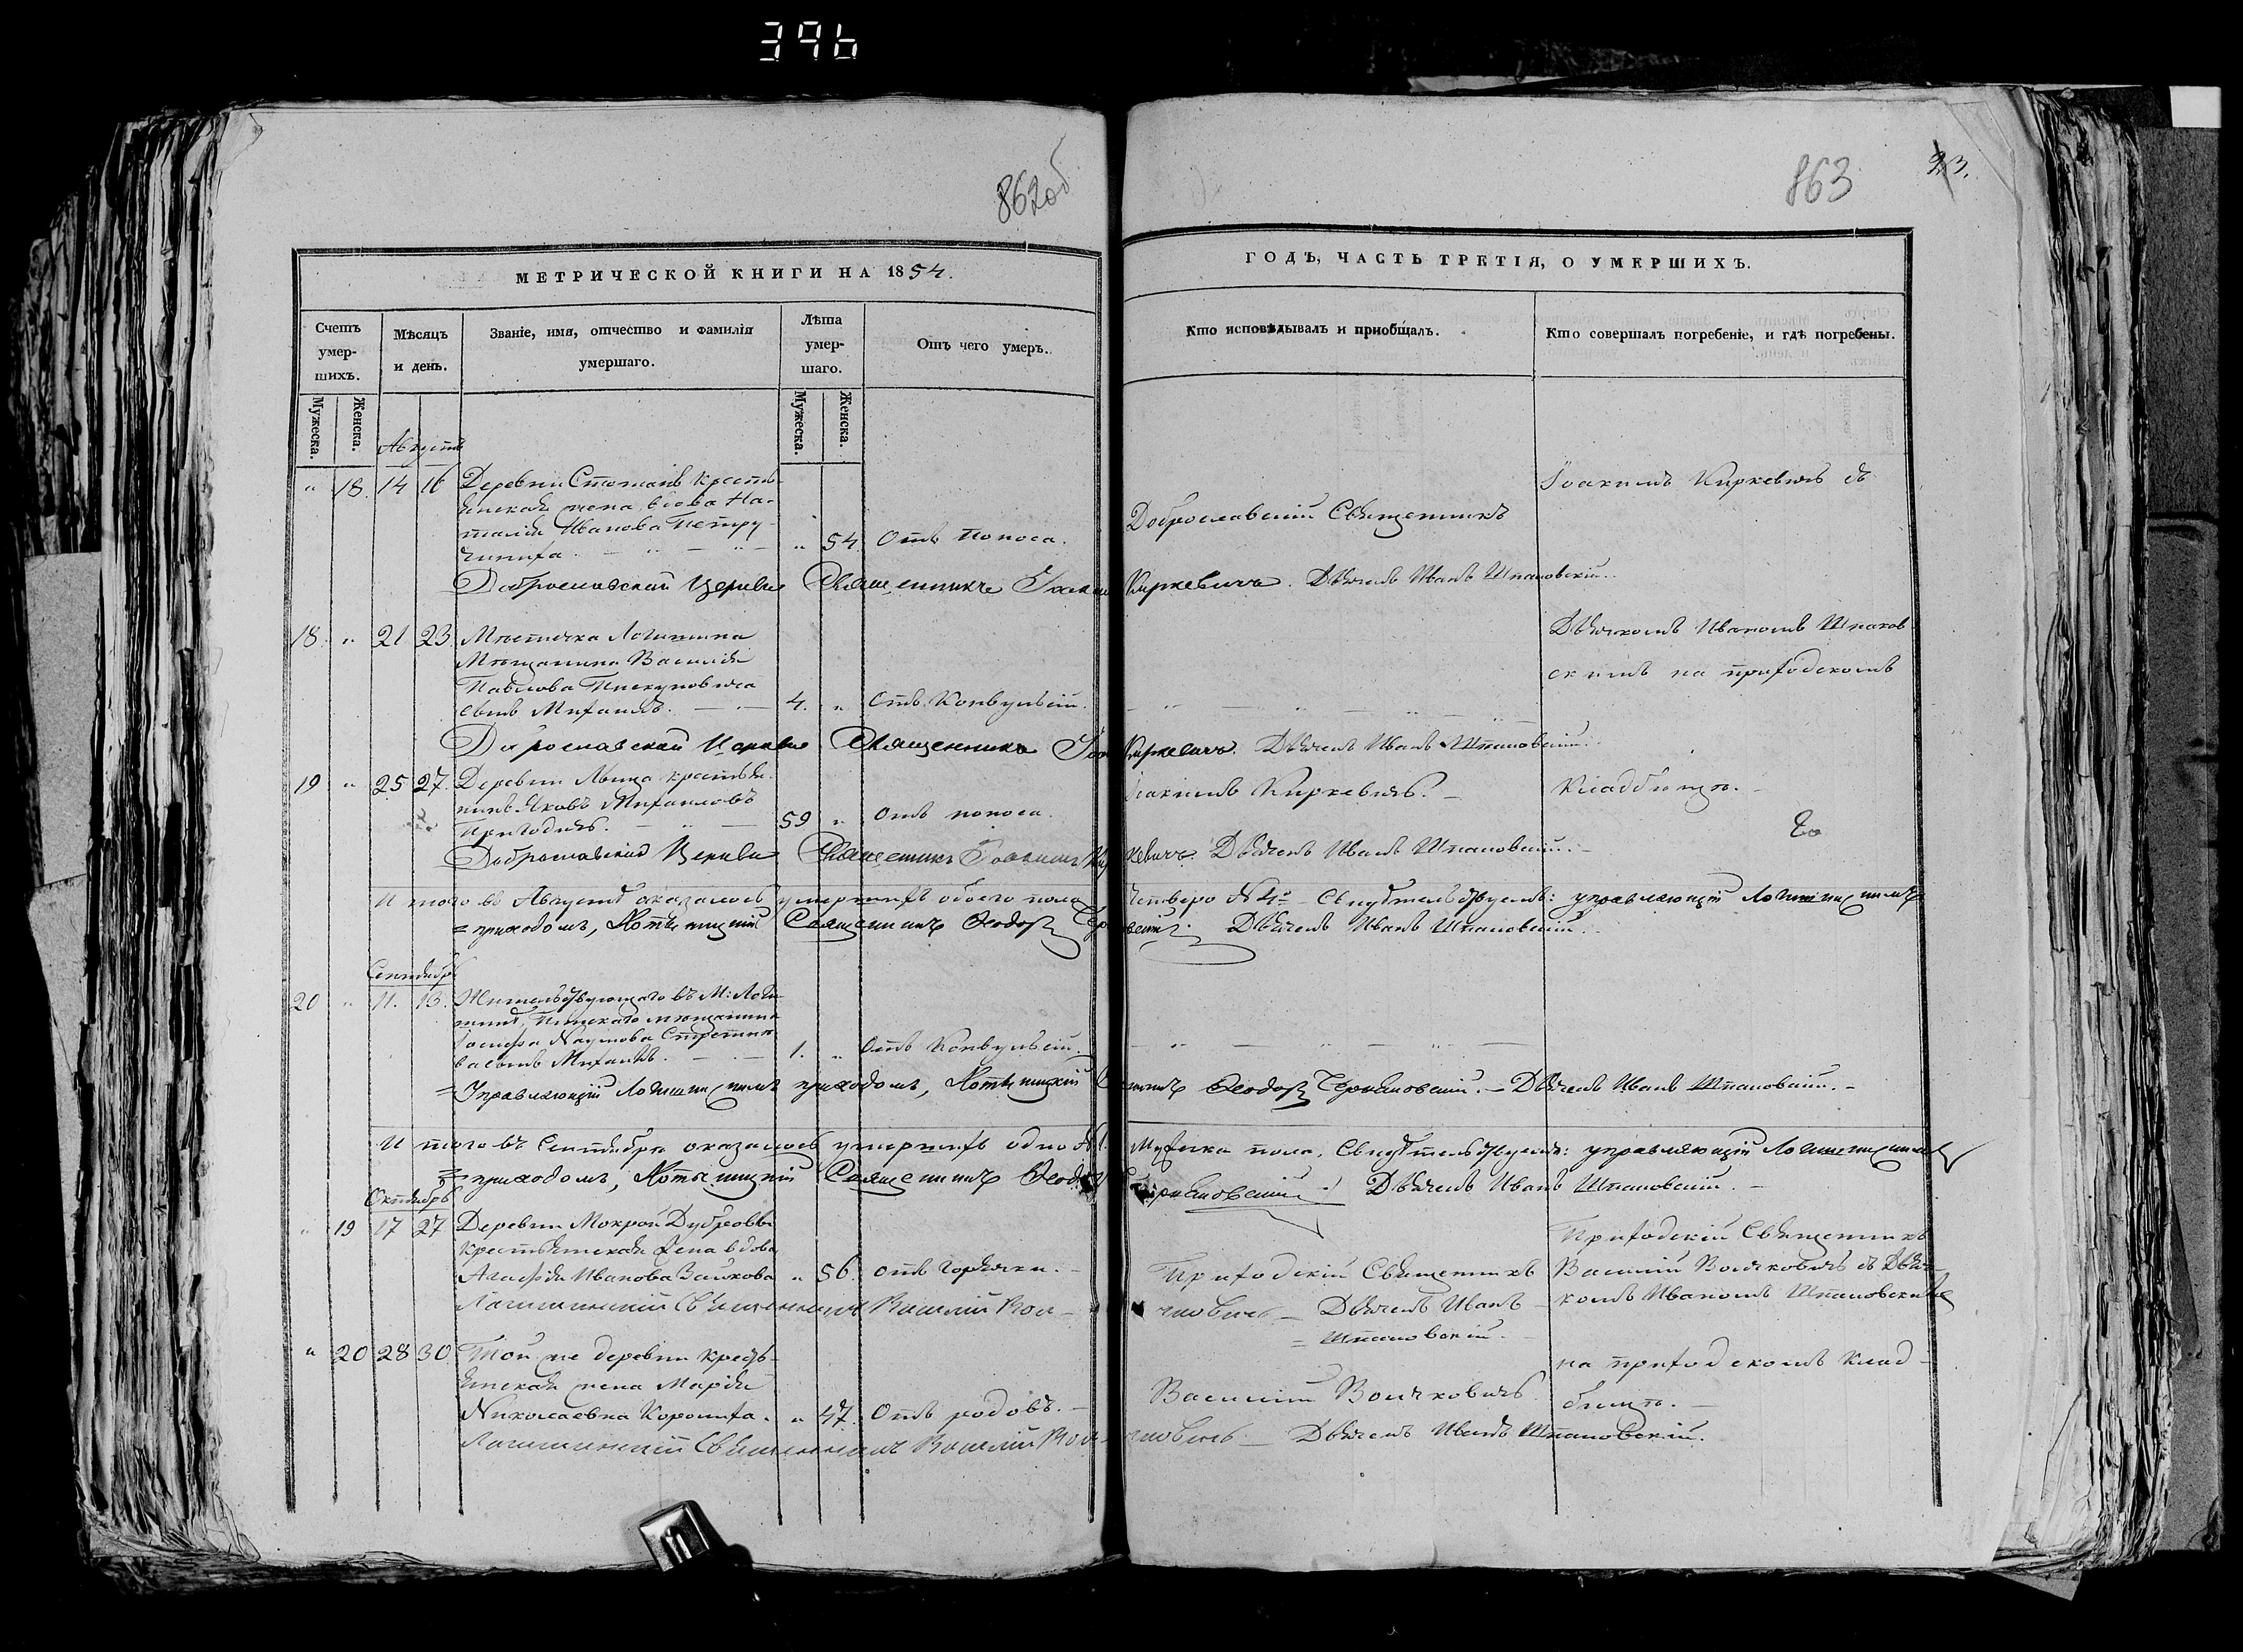 396
862об
863
23.
МЕТРИЧЕСКОЙ КНИГИ НА 1854.
ГОДЪ, ЧАСТЬ ТРЕТІЯ, О УМЕРШИХЪ.
Счетъ умер-шихъ.
Мѣсяцъ и день.
Званіе, имя, отчество и фамилія умершаго.
Лѣта умер-шаго.
Отъ чего умеръ.
Кто исповѣдывалъ и пріобщалъ.
Кто совершалъ погребеніе, и гдѣ погребены.
Мужеска.
Женска.
Мужеска.
Женска.
Августъ
" 18. 14 16 Деревни Стошанъ крестъ-
янская жена вдова На-
талія Иванова Петру-
чиниха. " 54. Отъ поноса.
Доброславскій Священникъ
Іоакимъ Киркевичъ съ
Доброславской Церкви Священникъ Іоакимъ Киркевичъ. Дьячекъ Иванъ Шпаковскій.
18. " 21 23 Мѣстечка Логишина
Мѣщанина Василія
Павлова Пискуновича
сынъ Михаилъ. 4. " Отъ Конвульсій.
Дьячкомъ Иваномъ Шпаков
скимъ на приходскомъ
Доброславской Церкви Священникъ Киркевичъ. Дьячекъ Иванъ Шпаковскій.
19 " 25 27. Деревни крестья-
нинъ Яковъ Михаиловъ
Пригодичъ. 59 " Отъ поноса.
Іоакимъ Киркевичъ.
Кладбищѣ.
Доброславской Церкви Священникъ Іоакимъ Киркевичъ. Дьячекъ Иванъ Шпаковскій.
И того въ Августѣ оказалось умершихъ обоего пола четверо N 4. Свидѣтельствуемъ: управляющій Логишинскимъ
= приходомъ, Священникъ Ѳеодоръ Дьячекъ Иванъ Шпаковскій.
Сентябрь
20 " 11. 13. Жительствующаго въ М: Логи-
шинѣ, Пинскаго мѣщанина
Іосифа Наумова
сынъ Михаилъ. 1. " Отъ Конвульсій.
= Управляющій Логишинскимъ приходомъ, Ѳеодоръ Дьячекъ Иванъ Шпаковскій.
И того въ Сентябрѣ оказалось умершихъ одно N 1. Мужеска пола. Свидѣтельствуемъ: управляющій Логишинскимъ
= приходомъ, Священникъ Ѳеодоръ Дьячекъ Иванъ Шпаковскій.
Октябрь
" 19 17 27 Деревни Мокрой Дубровы
крестьянская жена вдова
Агафія Иванова " 56. Отъ горячки.
Приходскій Священникъ
Приходскій Священникъ
Василій Волчковичъ съ Дьяч-
комъ Иваномъ Шпаковскимъ
Логишинскій Священникъ Василій Вол-
чковичъ Дьячекъ Иванъ
= Шпаковскій.
" 20 28 30 Той же деревни крестъ-
янская жена Марія
Николаевна " 47. Отъ родовъ.
Василій Волчковичъ
на приходскомъ клад-
бищѣ.
Логишинскій Священникъ Василій Волчковичъ Дьячекъ Иванъ Шпаковскій.